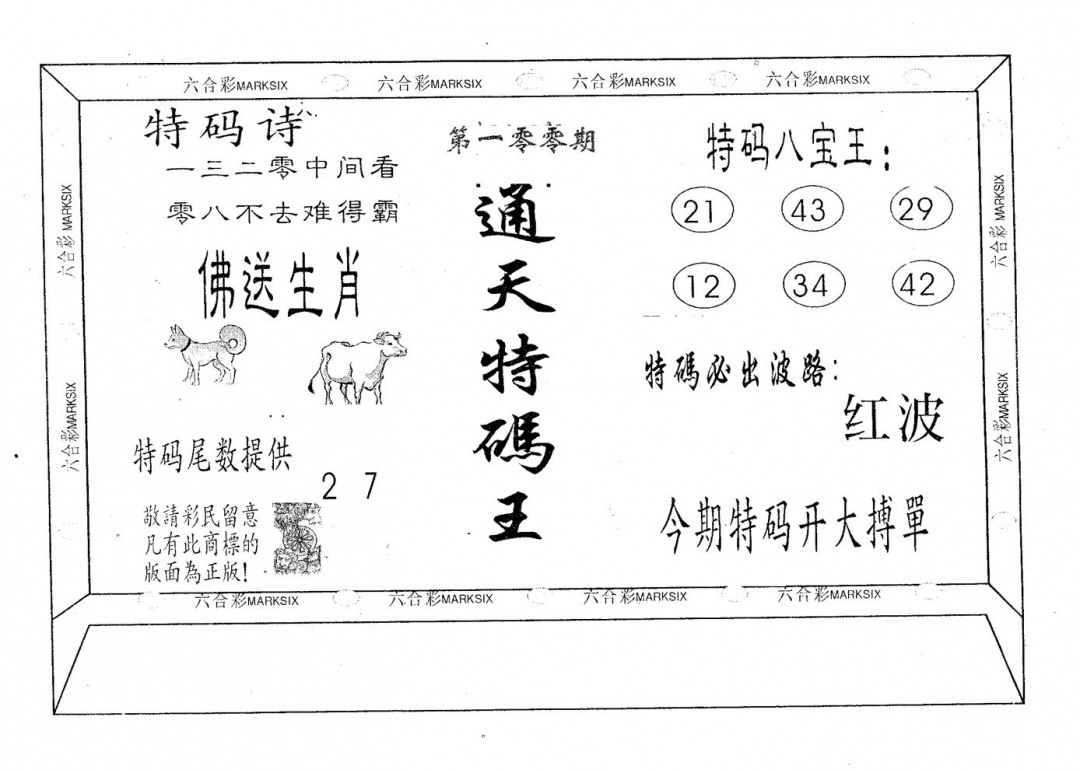 六合彩MARKSIX 六合彩MARKSIX 六合彩MARKSIX 六合彩MARKSIX
特码诗
一三二零中间看
零八不去难得霸
佛送生肖
特码尾数提供
2 7
敬請彩民留意
凡有此商標的
版面為正版!
第一零零期
通天特碼王
特码八宝王:
21 43 29
12 34 42
特碼必出波路:
红波
今期特码开大搏單
六合彩MARKSIX
六合彩MARKSIX
六合彩MARKSIX
六合彩MARKSIX
六合彩MARKSIX 六合彩MARKSIX 六合彩MARKSIX 六合彩MARKSIX